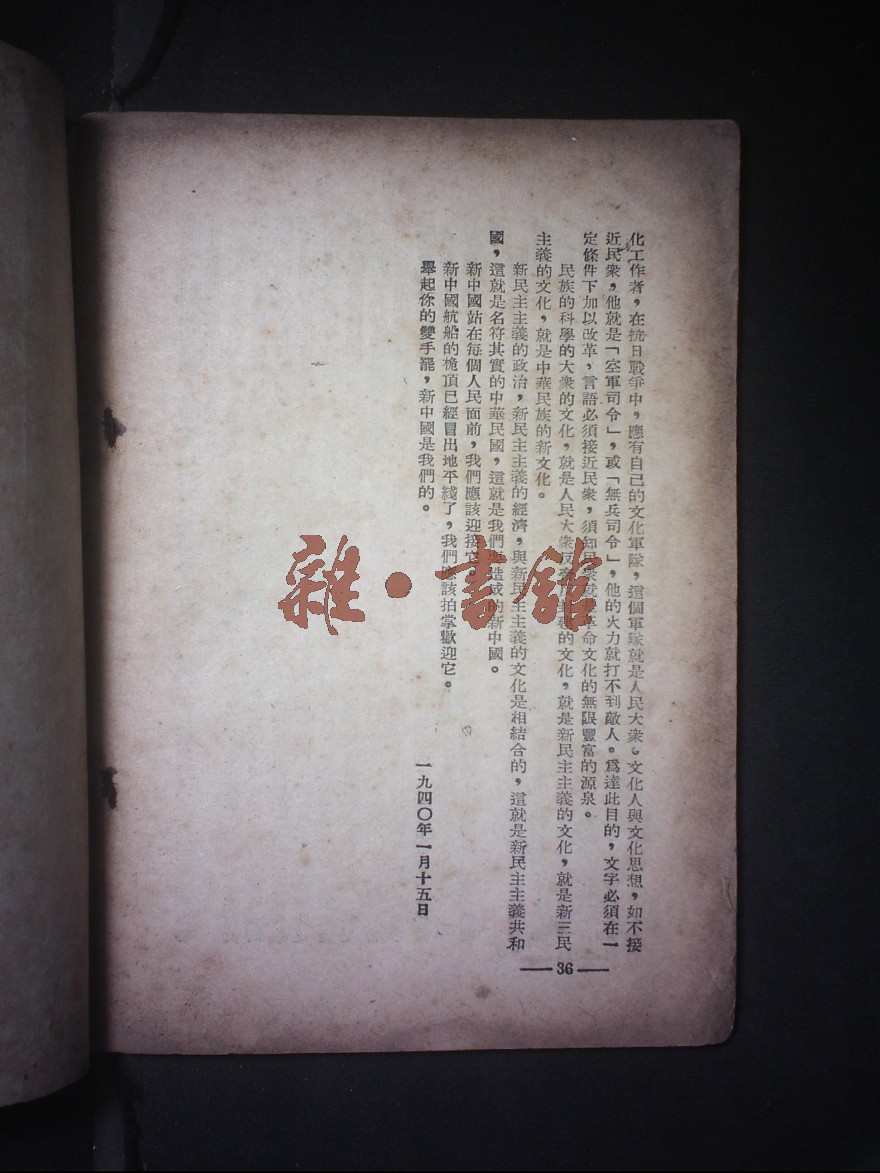 化工作者，在抗日戰爭中，應有自己的文化軍隊，這個軍隊就是人民大衆。文化人與文化思想，如不接
近民衆，他就是「空軍司令」，或「無兵司令」，他的火力就打不到敵人。爲達此目的，文字必須在一
定條件下加以改革，言語必須接近民衆，須知民衆就是革命文化的無限豐富的源泉。
民族的科學的大衆的文化，就是人民大衆反帝反封建的文化，就是新民主主義的文化，就是新三民
主義的文化，就是中華民族的新文化。
新民主主義的政治，新民主主義的經濟，與新民主主義的文化是相結合的，這就是新民主主義共和
國，這就是名符其實的中華民國，這就是我們要造成的新中國。
新中國站在每個人民面前，我們應該迎接它。
新中國航船的桅頂已經冒出地平綫了，我們應該拍掌歡迎它。
舉起你的雙手罷，新中國是我們的。
一九四〇年一月十五日
36
雜·書館